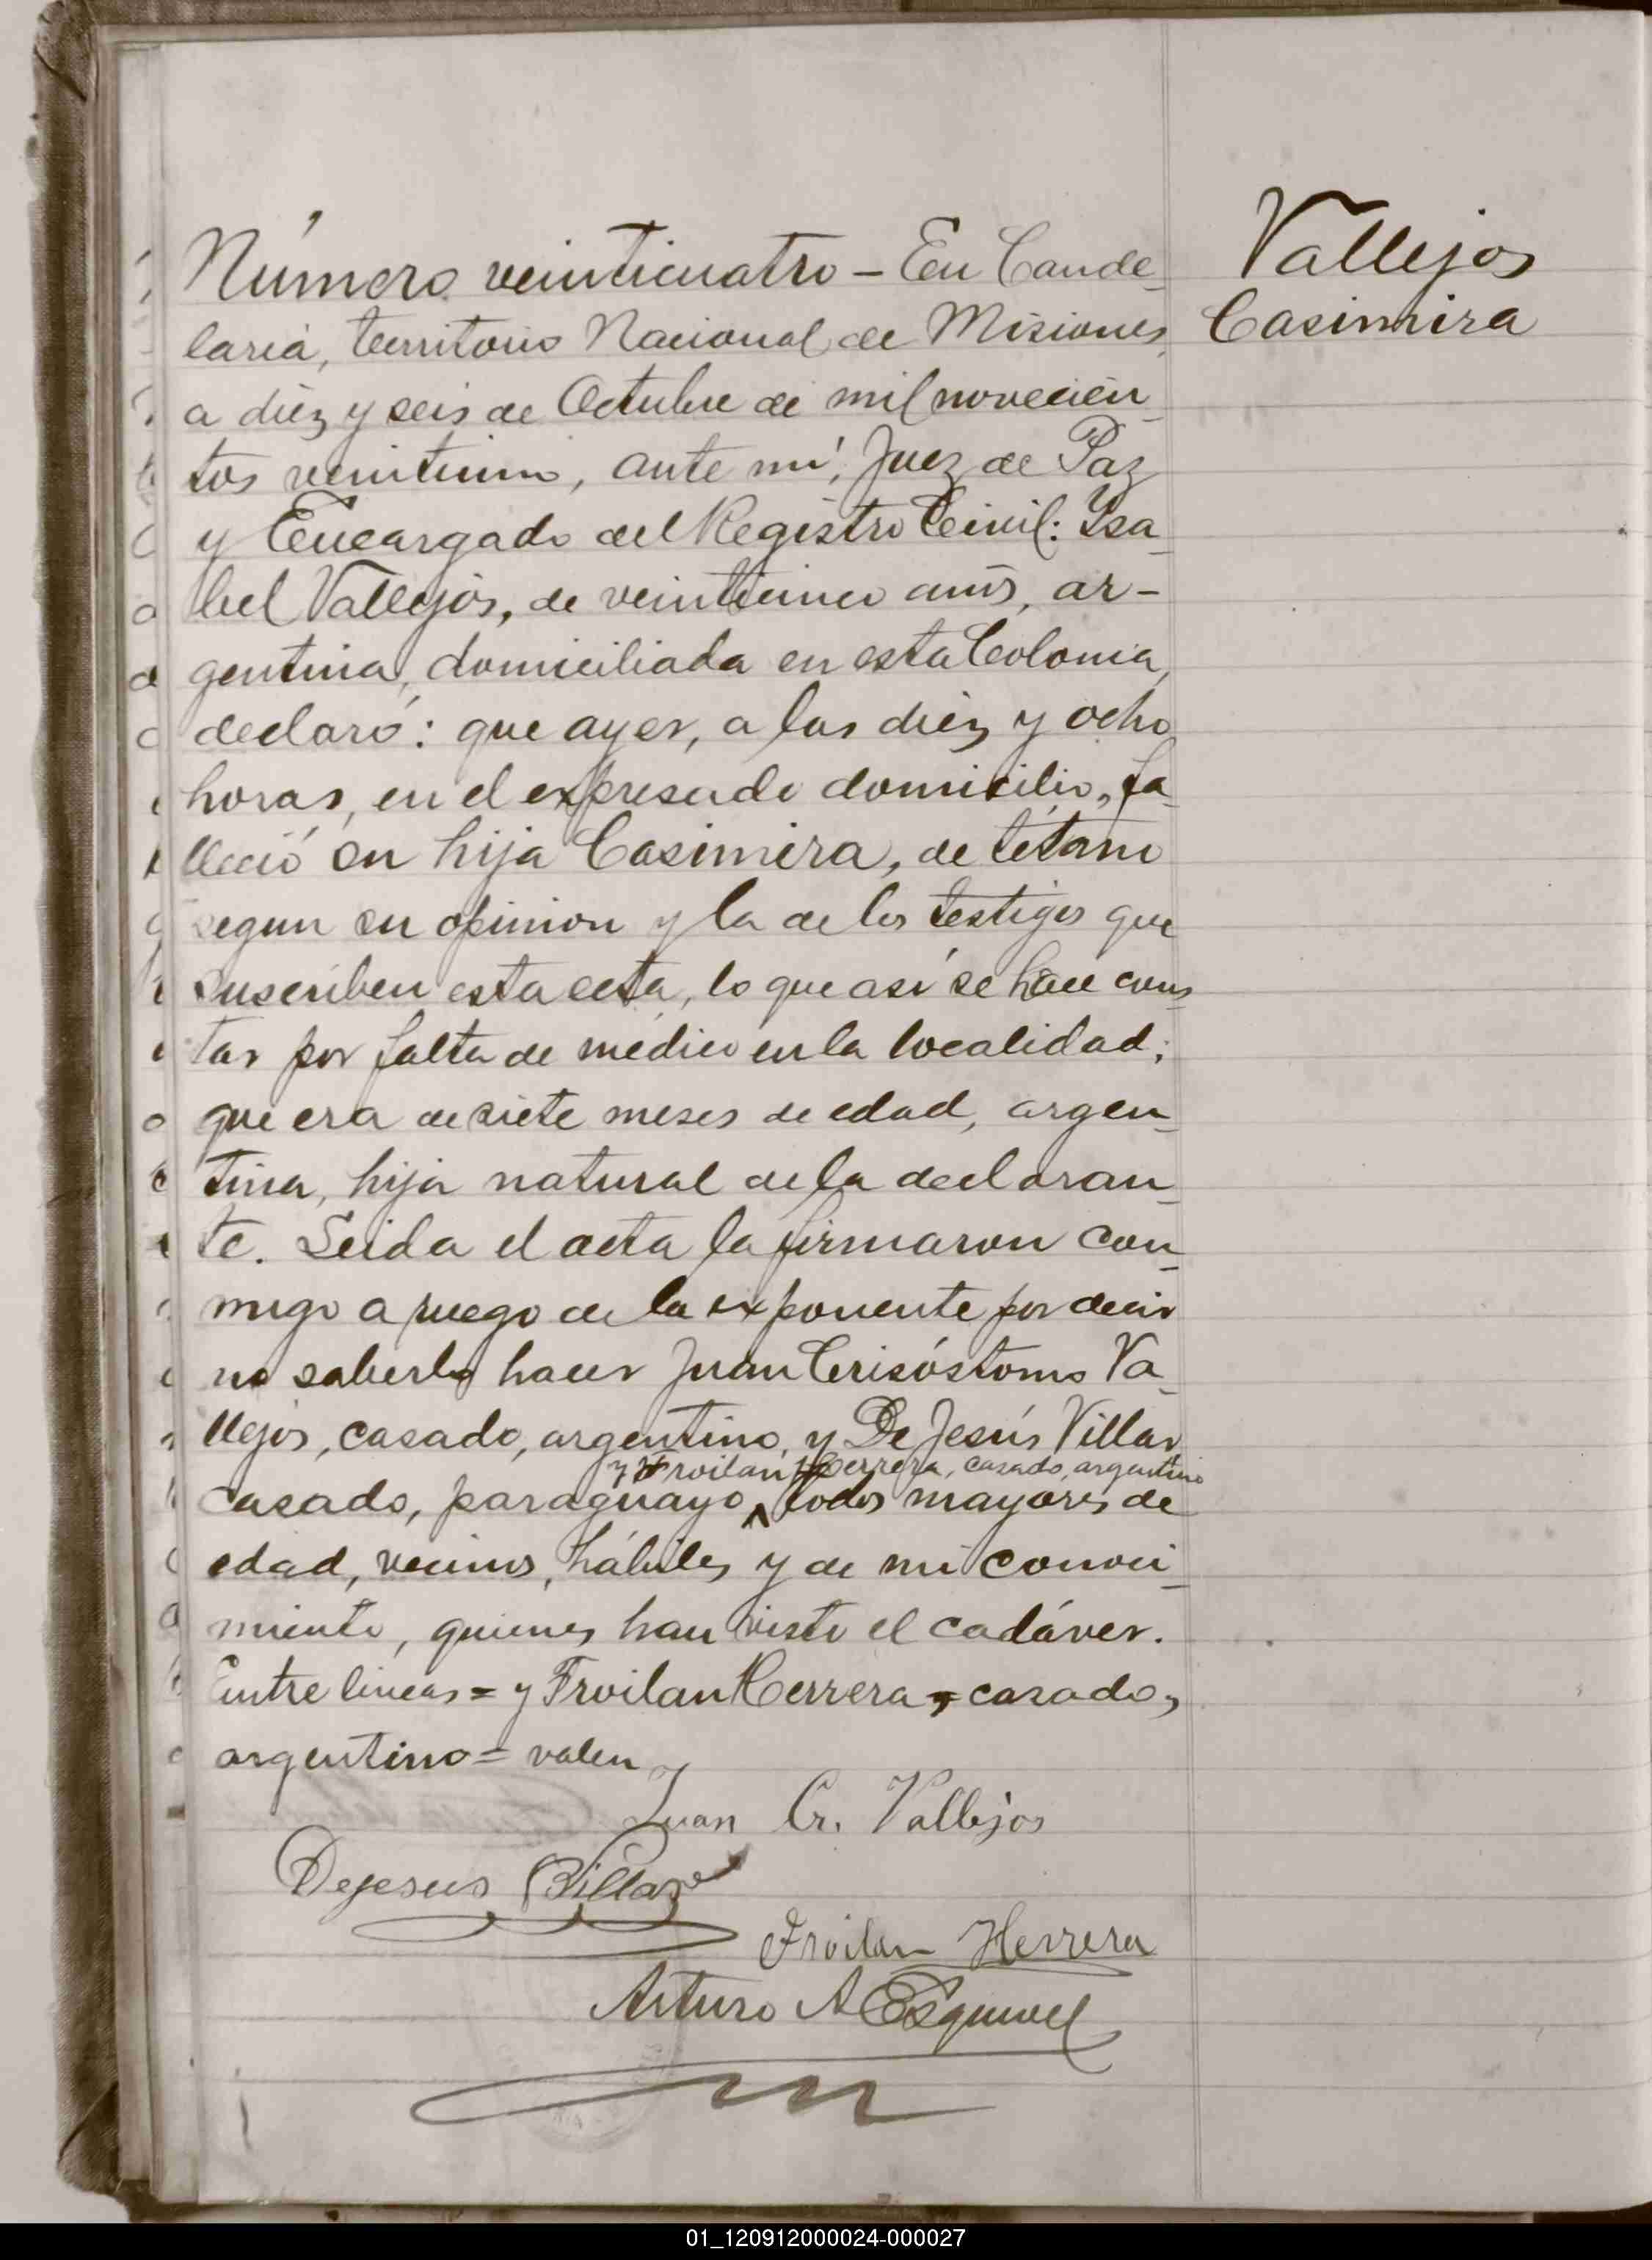 Número veinticuatro – En Cande-
laria, territorio Nacional de Misiones,
a diéz y seis de Octubre de mil novecien-
tos veintiuno, ante mí, Juez de Paz
y Encargado del Registro Civil: Ysa-
bel Vallejos, de veinticinco años, ar-
gentina, domiciliada en esta Colonia,
declaró: que ayer, a las diéz y ocho
horas, en el expresado domicilio, fa-
lleció su hija Casimira, de tétano
segun su opinion y la de los testigos que
suscriben esta acta, lo que así se hace cons
tar por falta de médico en la localidad;
que era de siete meses de edad, argen-
tina, hija natural de la declaran-
te. Leida el acta la firmaron con-
migo a ruego de la exponente por decir
no saberlo hacer Juan Crisóstomo Va-
llejos, casado, argentino, y De Jesús Villar
y Froilan Herrera, casado, argentino
casado, paraguayo, todos mayores de
edad, vecinos, hábiles y de mi conoci-
miento, quienes han visto el cadáver.
Entre lineas = y Froilan Herrera, casado,
argentino = valen
Juan Cr. Vallejos
Dejesus Billar
Froilan Herrera
Arturo A Esquivel
Vallejos
Casimira
01_120912000024-000027